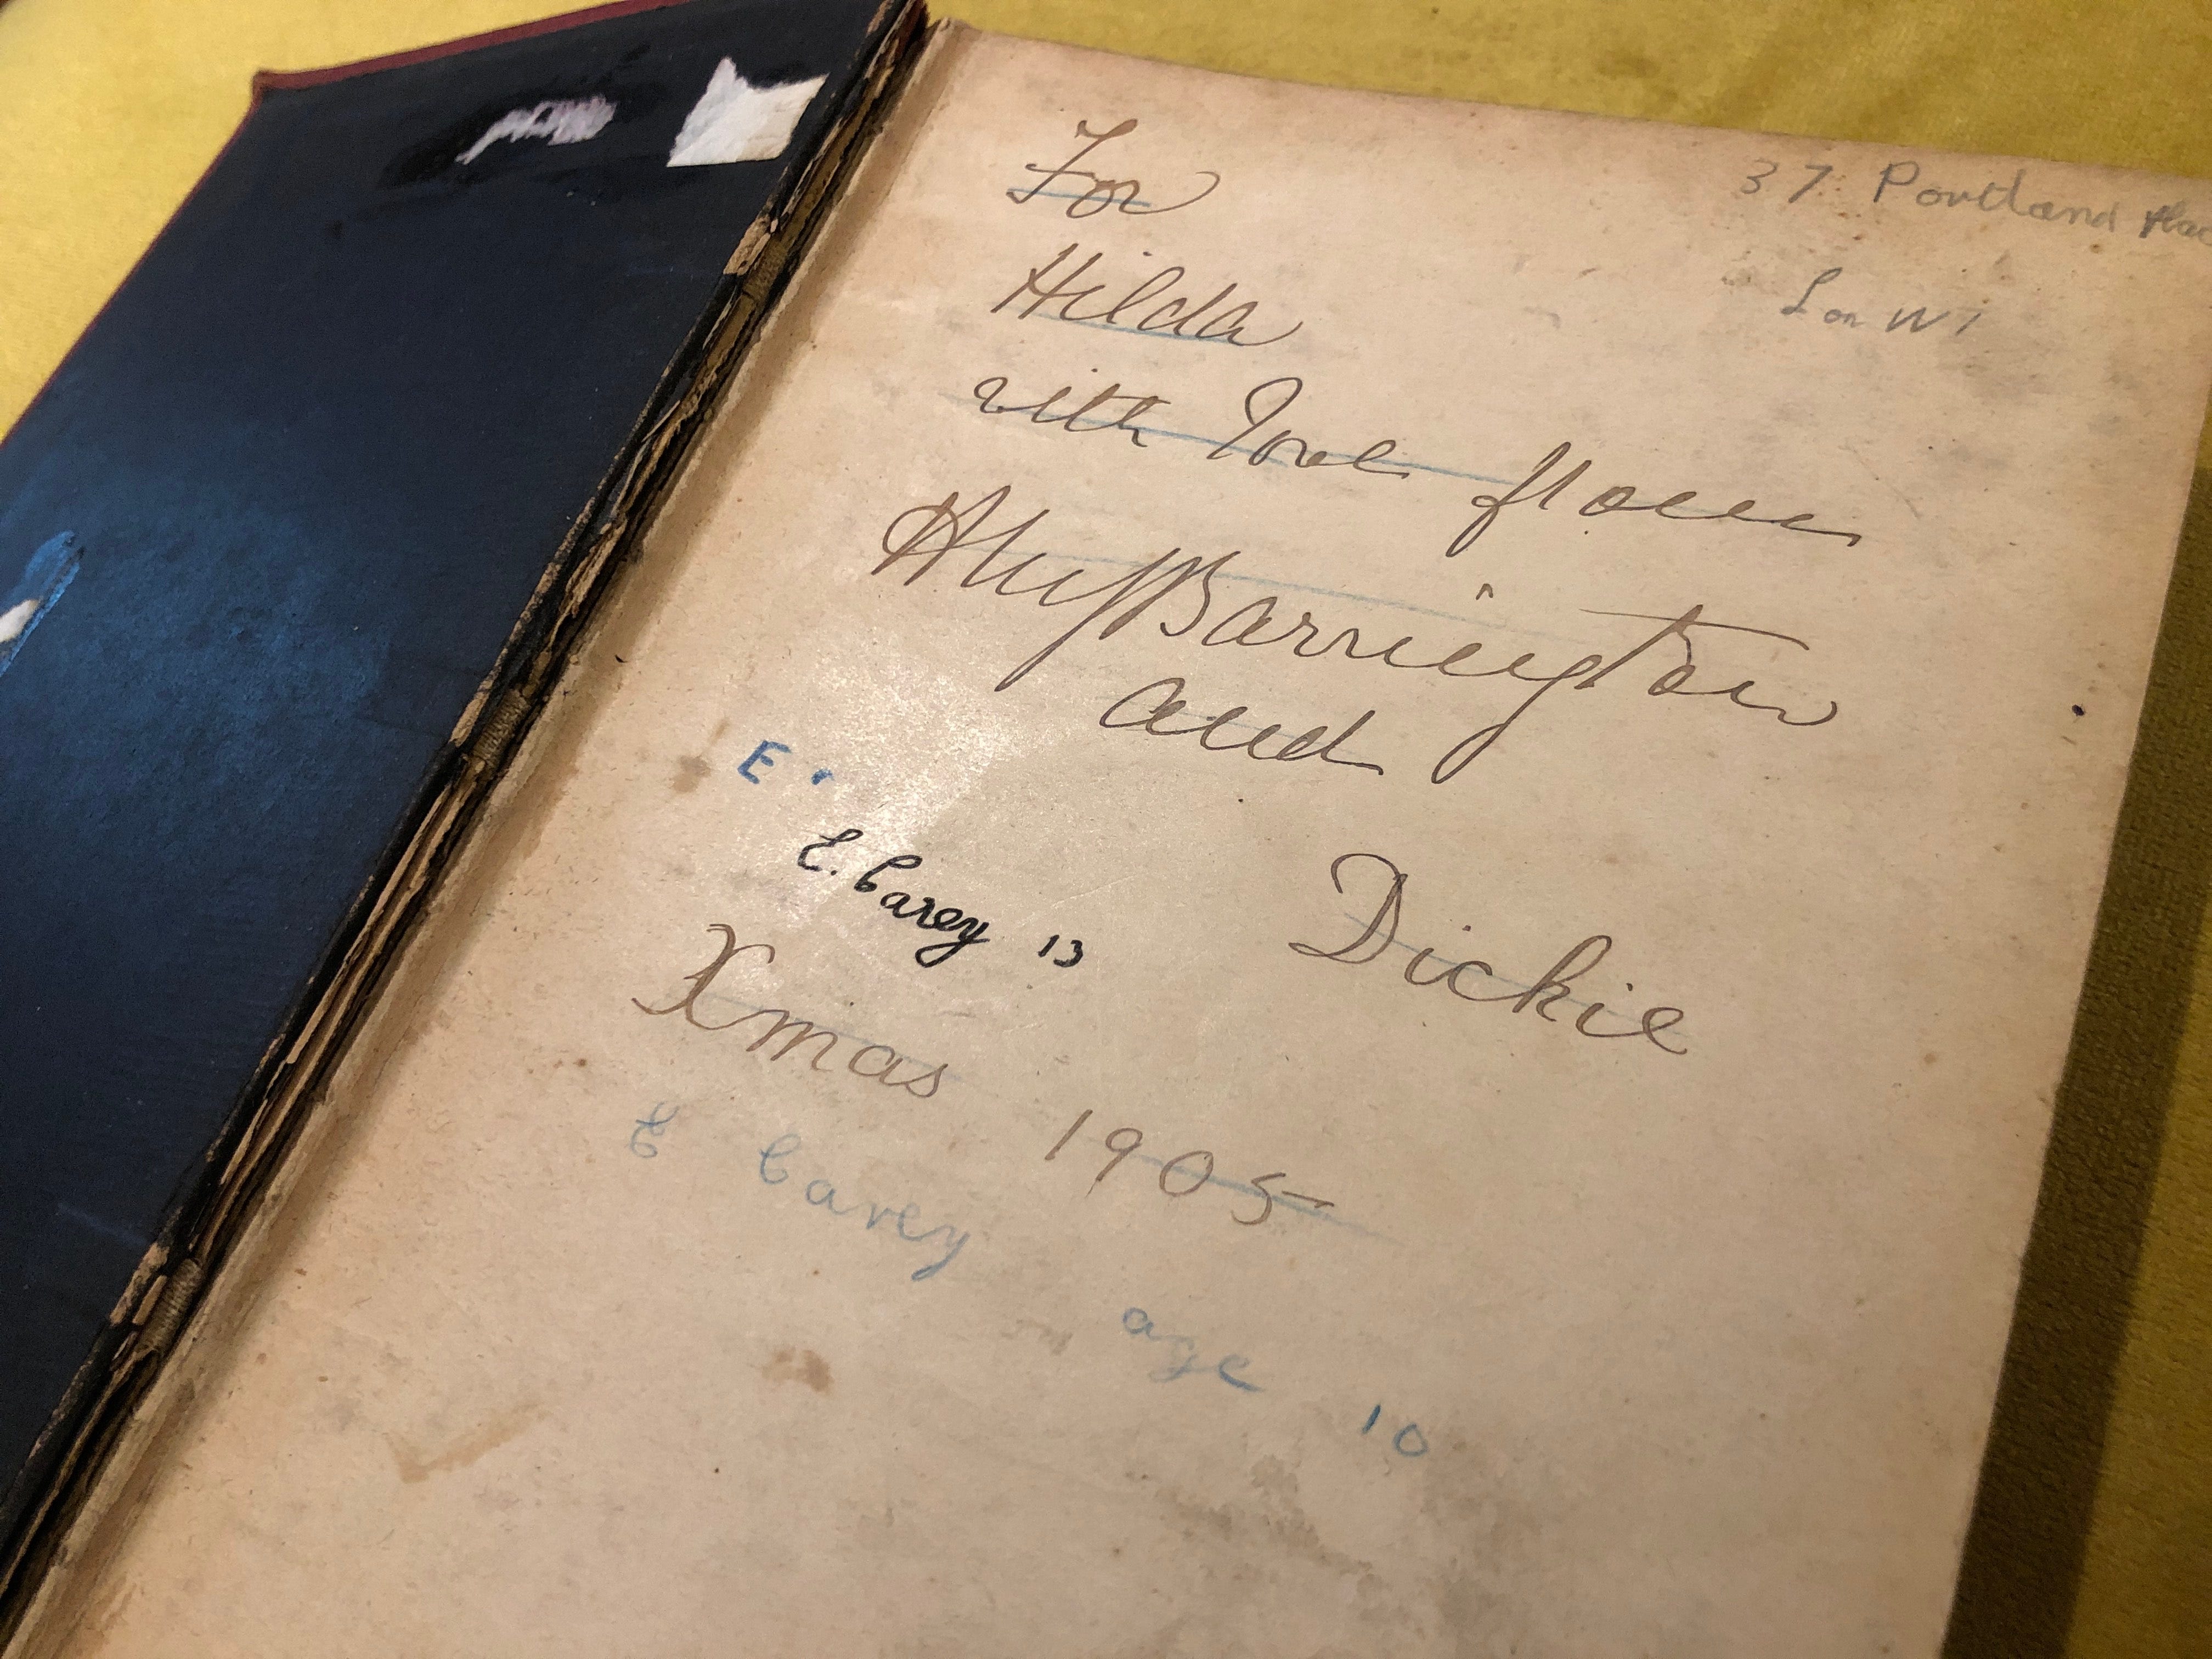 37 Portland
Lon W1
For
Hilda
with Love from
Barrington
and
E.
E. Carey 13
Dickie
Xmas 1905
E Carey age 10